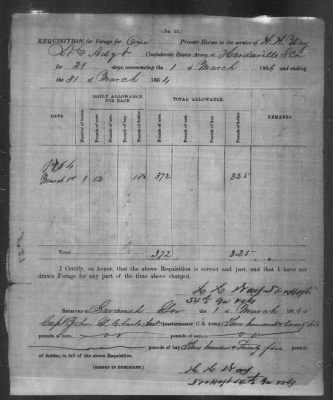 (No. 33.)
REQUISITION for Forage for One Private Horses in the service of H. H. Way
Lt & Adjt Confederate States Army, at Hardeeville S Ca
for 31 days, commencing the 1 of March 1864 and ending
the 31 of March 1864
DAILY ALLOWANCE FOR EACH
TOTAL ALLOWANCE.
DATE
Number of horses.
Pounds of corn.
Pounds of oats.
Pounds of hay.
Pounds of fodder.
Pounds of corn.
Pounds of oats.
Pounds of hay.
Pounds of fodder.
REMARKS
1864
March 1st 1 12 372 325
Total 372 325
I Certify, on honor, that the above Requisition is correct and just, and that I have not
drawn Forage for any part of the time above charged.
54th Ga Vols
RECEIVED at Savannah Geo the 1 of March 1864
of Capt John Quartermaster, C. S. Army, Three hundred &
pounds of corn, pounds of
pounds of hay, Three hundred & Twenty five pounds
of fodder, in full of the above Requisition.
(SIGNED IN DUPLICATE.)
54th Ga Vols